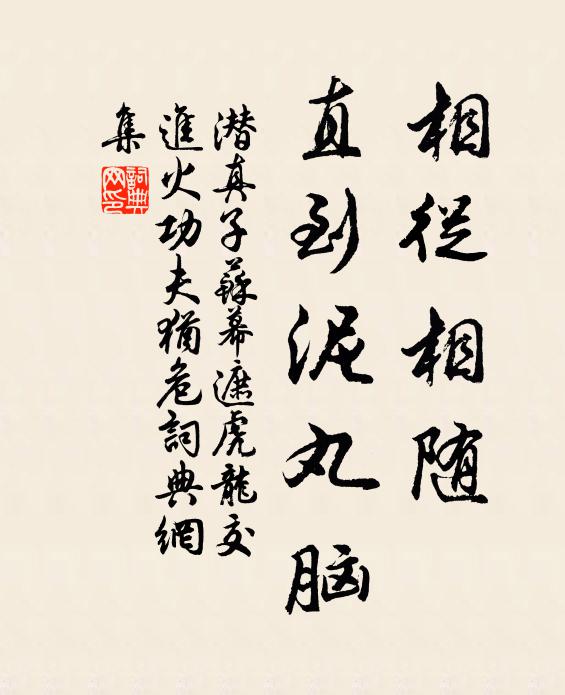 相從相随
直到泥丸脑
潜真子蘇幕遮虎龍交
進火功夫猶危詞典網
集
詞典
网印